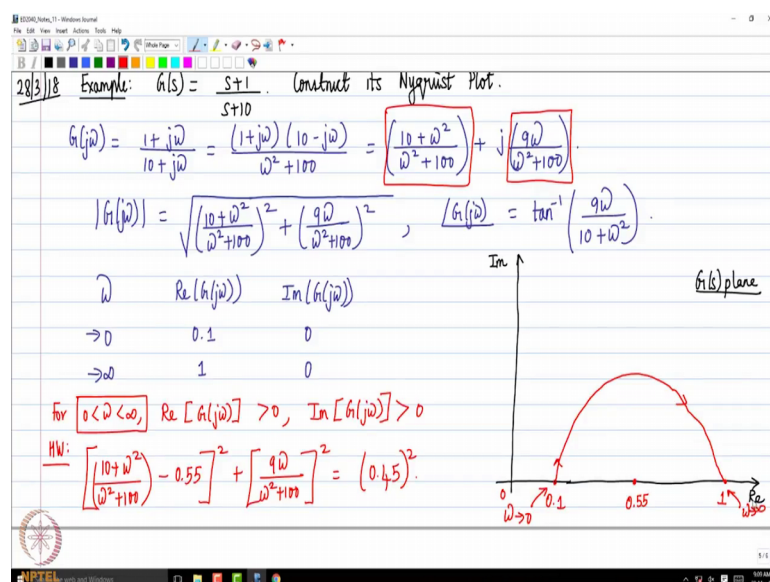 ED2040_Notes_11 - Windows Journal
File Edit View Insert Actions Tools Help
Whole Page
B I
28/3/18 Example: G(s) = (s+1)/(s+10). Construct its Nyquist Plot.
G(jω) = (1+jω)/(10+jω) = (1+jω)(10-jω)/(ω²+100) = ((10+ω²)/(ω²+100)) + j(9ω/(ω²+100)).
|G(jω)| = √(((10+ω²)/(ω²+100))² + (9ω/(ω²+100))²), ∠G(jω) = tan⁻¹(9ω/(10+ω²)).
ω Re(G(jω)) Im(G(jω))
→0 0.1 0
→∞ 1 0
For 0<ω<∞, Re[G(jω)] >0, Im[G(jω)] >0
HW:
[((10+ω²)/(ω²+100)) - 0.55]² + [9ω/(ω²+100)]² = (0.45)².
Im
G(s) plane
0 0.1 0.55 1 Re
ω→0 ω→∞
5/6
NPTEL
9:09 AM